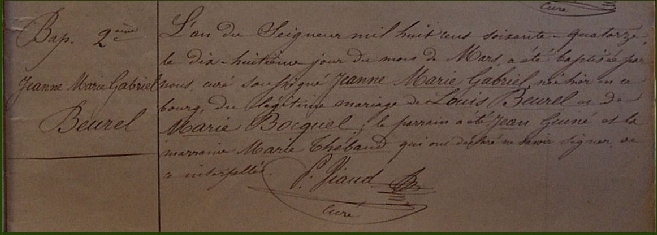 Curé
Bap. 2ème
Jeanne Marie Gabriel
Beurel
L'an du Seigneur mil huit cent soixante-quatorze,
le dix-huitième jour du mois de Mars, a été baptisée par
nous, curé soussigné Jeanne Marie Gabriel, née hier en ce
bourg, du légitime mariage de Louis Beurel et de
Marie Bocquel; le parrain a été Jean Guiné et la
marraine Marie Thébaud qui ont déclaré ne savoir signer, de
ce interpellés.
P. Jiaud
Curé